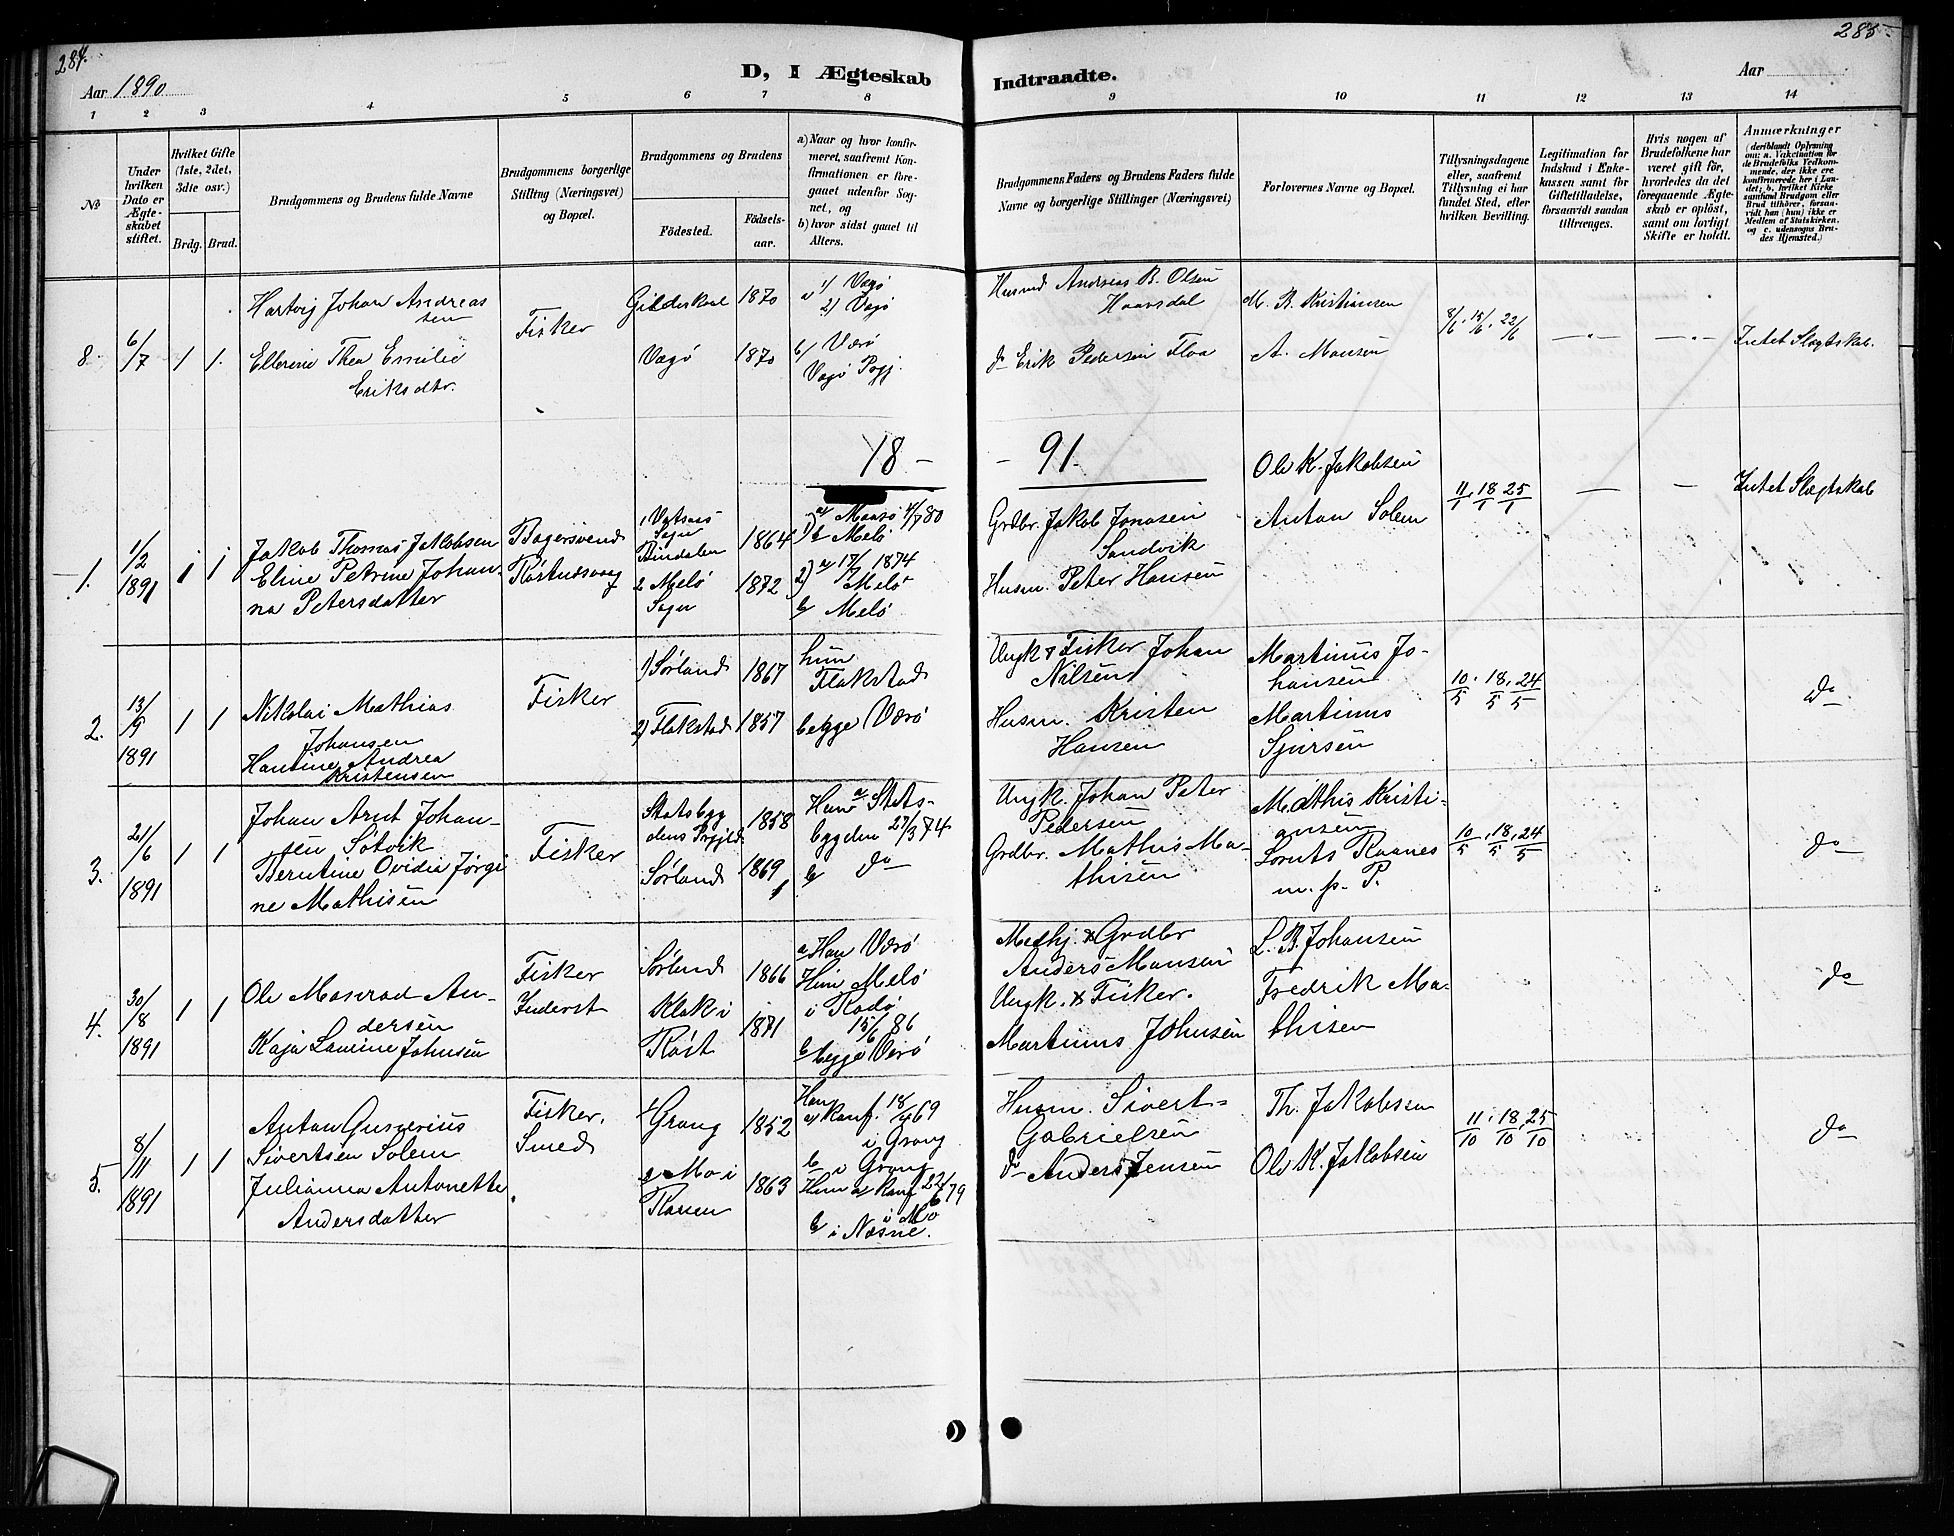 284.
285
Aar 1890
D, I Ægteskab
Indtraadte.
Aar
1 2 3 4 5 6 7 8 9 10 11 12 13 14
No
Under hvilken Dato er Ægteskabet stiftet.
Hvilket Gifte (1ste, 2det, 3die osv.)
Brdg. Brud.
Brudgommens og Brudens fulde Navne
Brudgommens borgerlige Stilling (Næringsvei) og Bopæl.
Brudgommens og Brudens
Fødested.
Fødselsaar.
a) Naar og hvor konfirmeret, saafremt Konfirmationen er foregaaet udenfor Sognet, og
b) hvor sidst gaaet til Alters.
Brudgommens Faders og Brudens Faders fulde Navne og borgerlige Stillinger (Næringsvei)
Forlovernes Navne og Bopæl.
Tillysningsdagene eller, saafremt Tillysning ei har fundet Sted, efter hvilken Bevilling.
Legitimation for Indskud i Enkekassen samt for Giftetilladelse, forsaavidt saadan tiltrænges.
Hvis nogen af Brudefolkene har været gift før, hvorledes da det foregaaende Ægteskab er opløst, samt om lovligt Skifte er holdt.
Anmærkninger
(deriblandt Oplysning om: a. Vakcination for de Brudefolks Vedkommende, der ikke ere konfirmerede her i Landet; b. hvilket Kirkesamfund Brudgom eller Brud tilhører, forsaavidt han (hun) ikke er Medlem af Statskirken, og c. udensogns Brudes Hjemsted.)
8. 6/7 1 1.
Hartvig Johan Andreas
sen
Ellerine Thea Emilie
Eriksdtr.
Fisker
Gildeskaal 1870
Vagø 1870
a/ 1) Vagø
2) Vagø
b/ Værø
Vagø Pgj.
Husmd Andreas B. Olsen
Haavsdal
do Erik Pedersen Floa
M. B. Kristiansen
A. Monsen
8/6. 15/6. 22/6
—"—
—"—
Intet Slægtskab.
18 —
— 91.
1. 1/2 1891 1 1
Jakob Thomas Jakobsen
Eline Petrine Johan-
na Petersdatter
Bagersvend
Røstnesvaag
1, Vatsaas
Sogn
Bindalen 1864
2 Melø 1872
Sogn
1) a Maasø 4/7 80
b Melø
2) a 17/1 1874
Melø
b Melø
Grdbr. Jakob Jonasen
Sandvik
Husm. Peter Hansen
Ole K. Jakobsen
Anton Solem
11/1 18/1 25/1
—
—
Intet Slægtskab
2. 13/9 1891 1 1
Nikolai Mathias
Johansen
Hantine Andrea
Kristensen
Fisker
1) Sørland 1867
2) Flakstad 1857
hun
Flakstad
begge Værø
Ungk & Fisker Johan
Nilsen
Husm. Kristen
Hansen
Martinus Jo-
hansen
Martinus
Sjursen
10/5. 18/5. 24/5
do
3. 21/6 1891 1 1
Johan Arnt Johan-
sen Søtvik
Berntine Ovidia Jørgi
ne Mathisen
Fisker
Statsbyg
dens Prgjld 1858
Sørland 1869
Han a Stats-
bygden 27/3 74
b do
Ungk. Johan Peter
Pedersen
Grdbr. Mathis Ma-
thisen
Mathis Kristi-
ansen
Lornts Raanes
m. p. P.
10/5. 18/5. 24/5
do
4. 30/8 1891 1 1
Ole Maserad An-
dersen
Kaja Laurine Johnsen
Fisker
Inderst
Sørland 1866
Klak i 1871
Røst
a Han Værø
Hun Melø
i Rødø
15/6 86
b begge Værø
Medhj. & Grdbr
Anders Monsen
Ungk. & Fisker.
Martinus Johnsen
L. B. Johansen
Fredrik Ma-
thisen
do
5. 8/11 1891 1 1
Anton Gunerius
Sivertsen Solem
Julianna Antonette
Andersdatter
Fisker,
Smed
1 Grong 1852
2 Mo i 1863
Ranen
Han
a) Konf. 18/4 69
i Grong
b i Grong
Hun a) Konf 22/6 79
i Mo
b i Næsne.
Husm. Sivert
Gabrielsen
do Anders Jensen
Th. Jakobsen
Ole K. Jakobsen
11/10. 18/10. 25/10
do